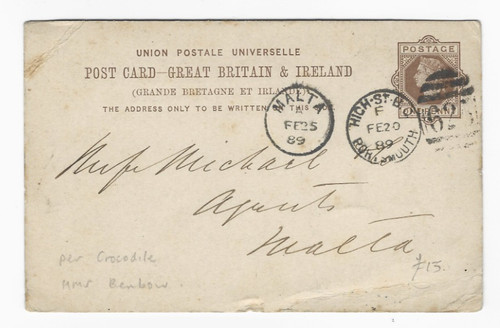 UNION POSTALE UNIVERSELLE
POST CARD—GREAT BRITAIN & IRELAND
(GRANDE BRETAGNE ET IRLANDE)
THE ADDRESS ONLY TO BE WRITTEN ON THIS
POSTAGE
MALTA
A
FE 25
89
HIGH-ST-B
F
FE 20
89
PORTSMOUTH
Michael
Agents
Malta
per Crocodile
HMS Benbow.
£15.